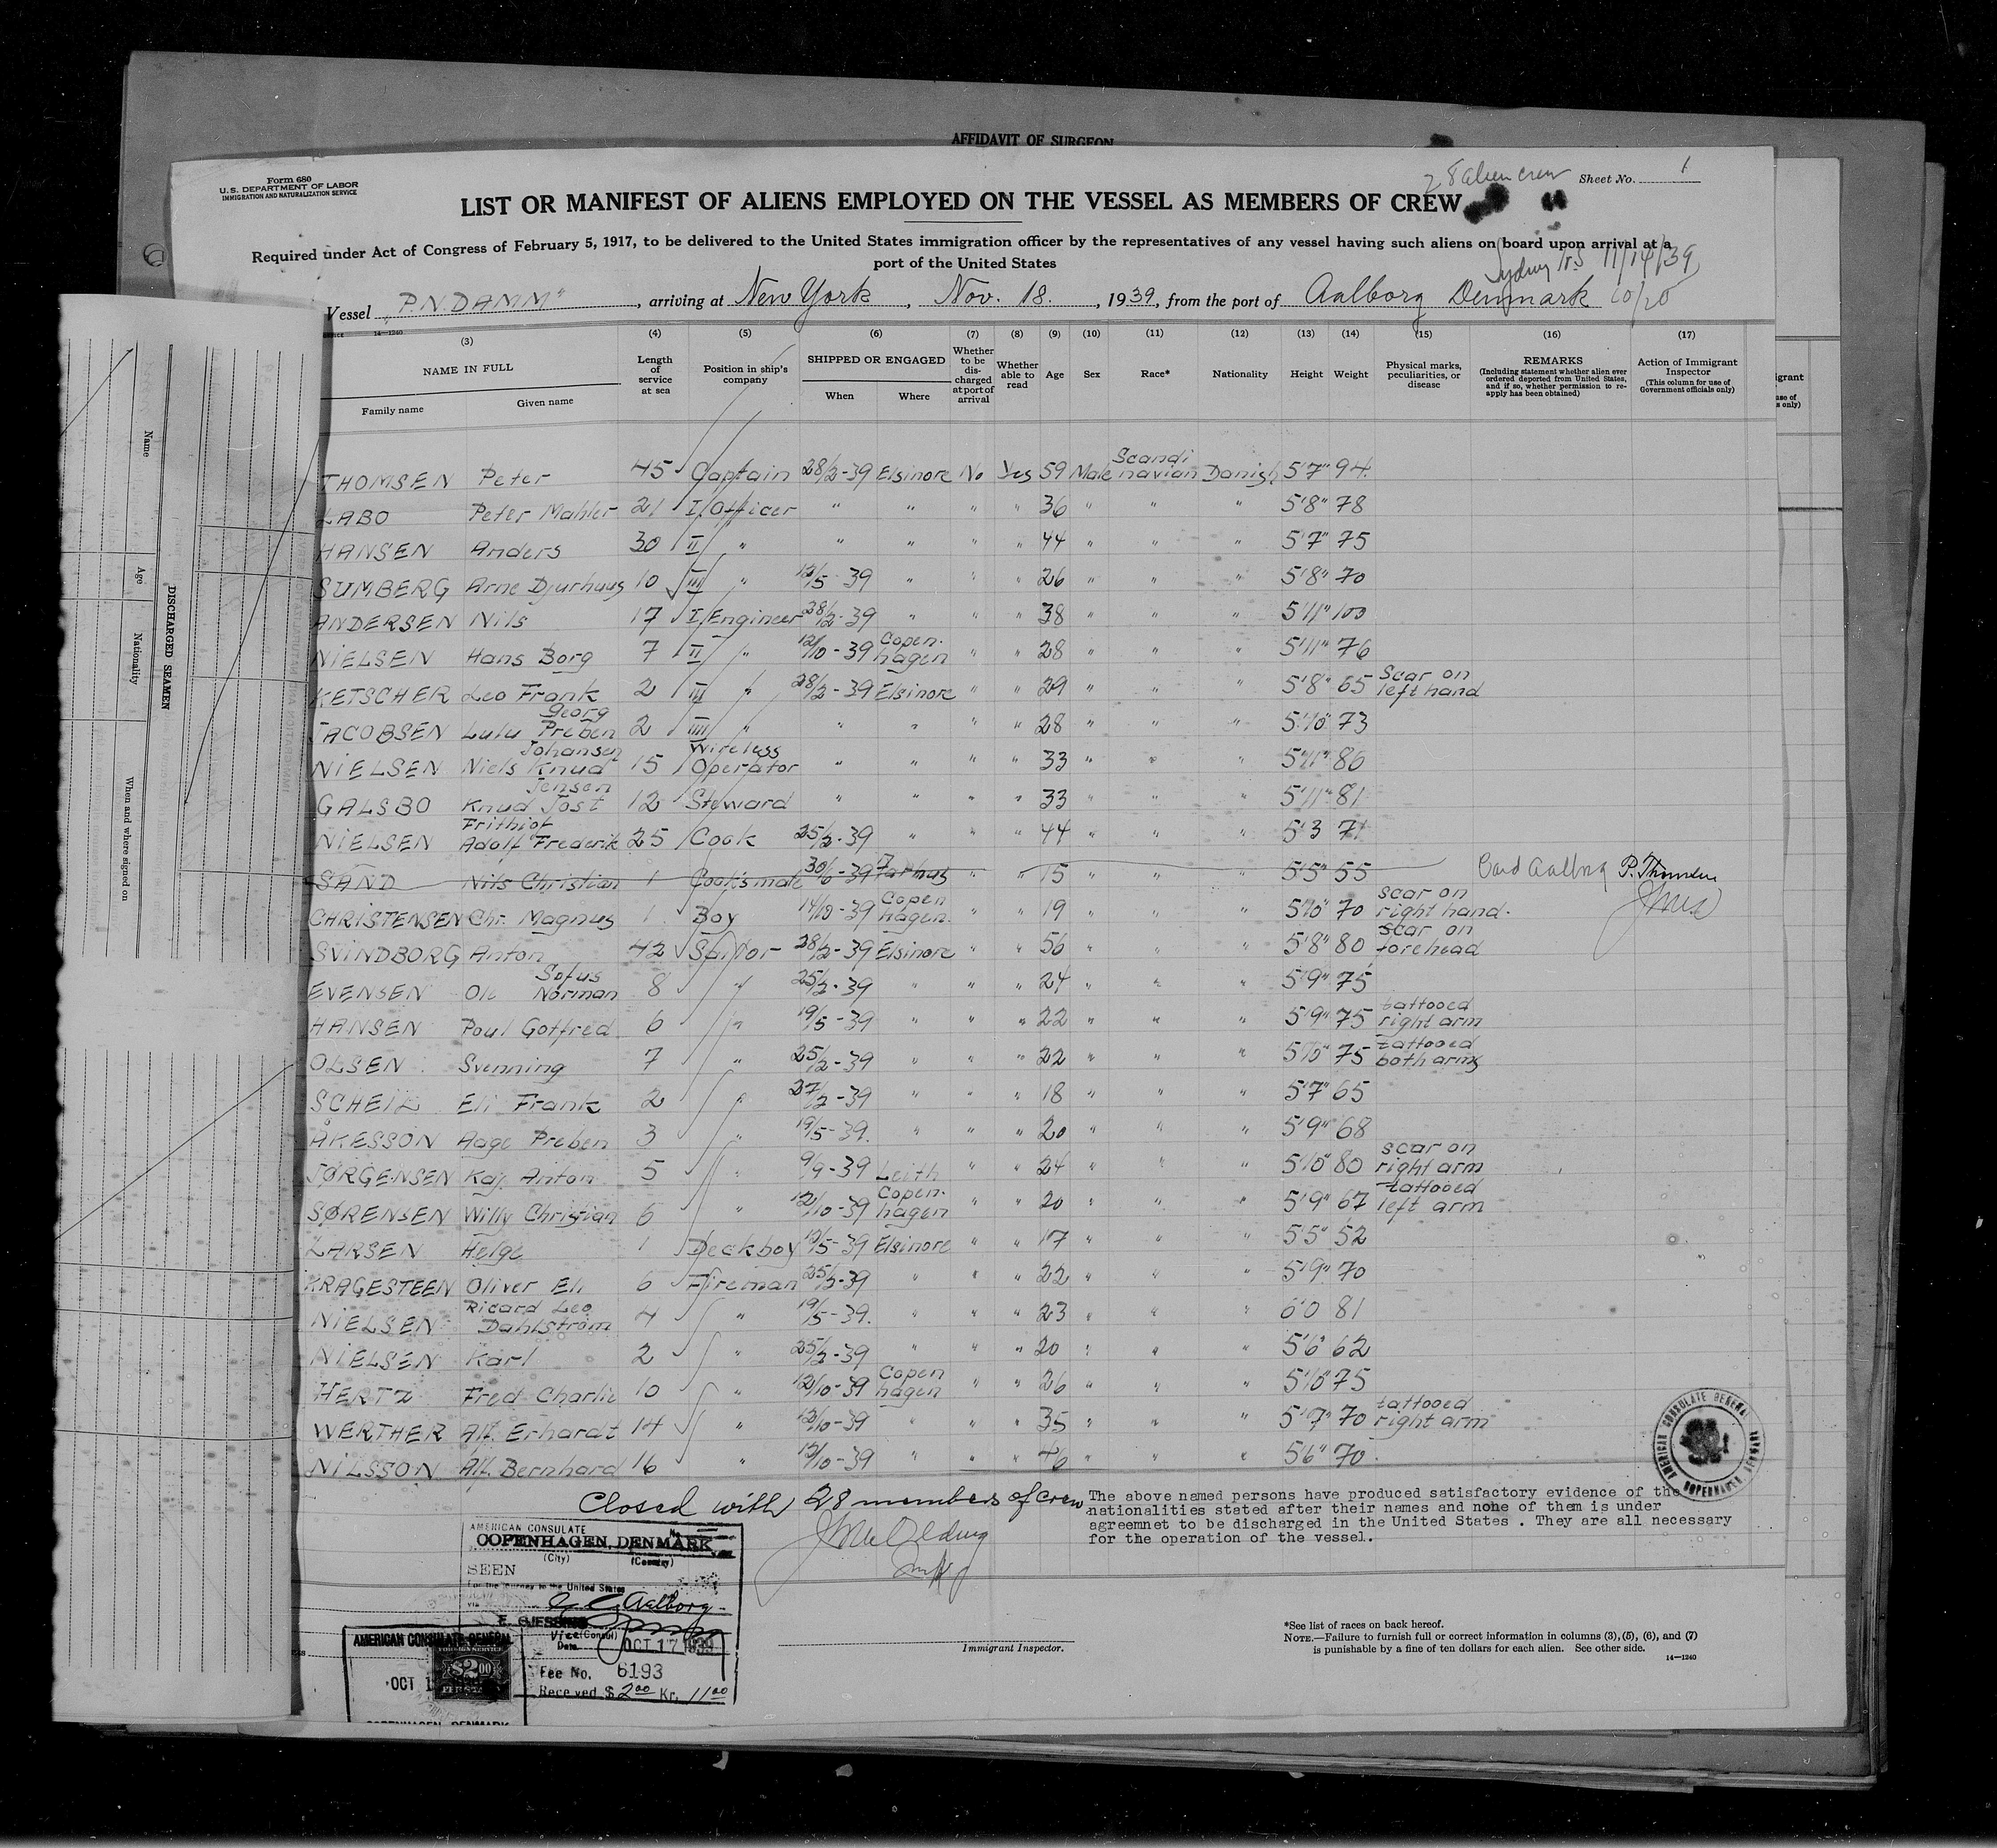 AFFIDAVIT OF SURGEON
Form 680
U.S. DEPARTMENT OF LABOR
IMMIGRATION AND NATURALIZATION SERVICE
28 alien crew
Sheet No. 1
LIST OR MANIFEST OF ALIENS EMPLOYED ON THE VESSEL AS MEMBERS OF CREW
Required under Act of Congress of February 5, 1917, to be delivered to the United States immigration officer by the representatives of any vessel having such aliens on board upon arrival at a
port of the United States
Sydney N.S 11/14/39
Vessel "P.N. DAMM", arriving at New York, Nov. 18., 1939, from the port of Aalborg Denmark 10/20
14—1240
(3) (4) (5) (6) (7) (8) (9) (10) (11) (12) (13) (14) (15) (16) (17)
NAME IN FULL
Family name Given name
Length of service at sea
Position in ship's company
SHIPPED OR ENGAGED
When Where
Whether to be discharged at port of arrival
Whether able to read
Age
Sex
Race*
Nationality
Height
Weight
Physical marks, peculiarities, or disease
REMARKS
(Including statement whether alien ever ordered deported from United States, and if so, whether permission to reapply has been obtained)
Action of Immigrant Inspector
(This column for use of Government officials only)
THOMSEN Peter 45 Captain 28/2-39 Elsinore No Yes 59 Male Scandinavian Danish 5'7" 94
LABO Peter Mahler 21 I. Officer " " " " 36 " " " 5'8" 78
HANSEN Anders 30 II " " " " " 44 " " " 5'7" 75
SUMBERG Arne Djurhuus 10 III " 12/5-39 " " " 26 " " " 5'8" 70
ANDERSEN Nils 17 I Engineer 28/2-39 " " " 38 " " " 5'11" 100
NIELSEN Hans Borg 7 II " 12/10-39 Copenhagen " " 28 " " " 5'11" 76
KETSCHER Leo Frank 2 III " 28/2-39 Elsinore " " 29 " " " 5'8" 65 Scar on left hand
JACOBSEN Lulu Georg Preben 2 IIII " " " " " 28 " " " 5'10" 73
NIELSEN Niels Knud Johansen 15 Wireless Operator " " " " 33 " " " 5'11" 86
GALSBO Knud Jost Jensen 12 Steward " " " " 33 " " " 5'11" 81
NIELSEN Frithiof Adolf Frederik 25 Cook 25/2-39 " " " 44 " " " 5'3 71
SAND Nils Christian 1 Cook's mate 30/6-39 Aarhus " " 15 " " " 5'5" 55 Aalborg P. Thomsen
CHRISTENSEN Chr. Magnus 1 Boy 14/10-39 Copenhagen " " 19 " " " 5'10" 70 scar on right hand.
SVINDBORG Anton 42 Sailor 28/2-39 Elsinore " " 56 " " " 5'8" 80 scar on forehead
EVENSEN Ole Sofus Norman 8 " 25/2-39 " " " 24 " " " 5'9" 75
HANSEN Poul Gotfred 6 " 19/5-39 " " " 22 " " " 5'9" 75 tattooed right arm
OLSEN Svenning 7 " 25/2-39 " " " 22 " " " 5'10" 75 tattooed both arms
SCHEIL Eli Frank 2 " 27/2-39 " " " 18 " " " 5'7" 65
ÅKESSON Aage Preben 3 " 19/5-39. " " " 20 " " " 5'9" 68
JØRGENSEN Kaj Anton 5 " 9/9-39 Leith " " 24 " " " 5'10" 80 scar on right arm
SØRENSEN Willy Christian 6 " 12/10-39 Copenhagen " " 20 " " " 5'9" 67 tattooed left arm
LARSEN Helge 1 Deckboy 19/5-39 Elsinore " " 17 " " " 5'5" 52
KRAGESTEEN Oliver Eli 6 Fireman 25/2-39 " " " 22 " " " 5'9" 70
NIELSEN Ricard Leo Dahlstrøm 4 " 19/5-39. " " " 23 " " " 6'0 81
NIELSEN Karl 2 " 25/2-39 " " " 20 " " " 5'6" 62
HERTZ Fred Charlie 10 " 12/10-39 Copenhagen " " 26 " " " 5'10" 75
WERTHER Alf. Erhardt 14 " 12/10-39 " " " 35 " " " 5'7" 70 tattooed right arm
NILSSON Alf. Bernhard 16 " 12/10-39 " " " 46 " " " 5'6" 70
Closed with 28 members of crew
The above named persons have produced satisfactory evidence of the
nationalities stated after their names and none of them is under
agreemnet to be discharged in the United States . They are all necessary
for the operation of the vessel.
AMERICAN CONSULATE GENERAL
COPENHAGEN DENMARK
AMERICAN CONSULATE
COPENHAGEN, DENMARK
(City) (Country)
SEEN
For the journey to the United States
via Aalborg
Vice (Consul)
Date OCT 17 1939
Fee No. 6193
Received $ 2.00 Kr. 11.00
AMERICAN CONSULATE GENERAL
$2.00
OCT 1
COPENHAGEN, DENMARK
Immigrant Inspector.
*See list of races on back hereof.
NOTE.—Failure to furnish full or correct information in columns (3), (5), (6), and (7)
is punishable by a fine of ten dollars for each alien. See other side.
14—1240
DISCHARGED SEAMEN
Name
Age
Nationality
When and where signed on